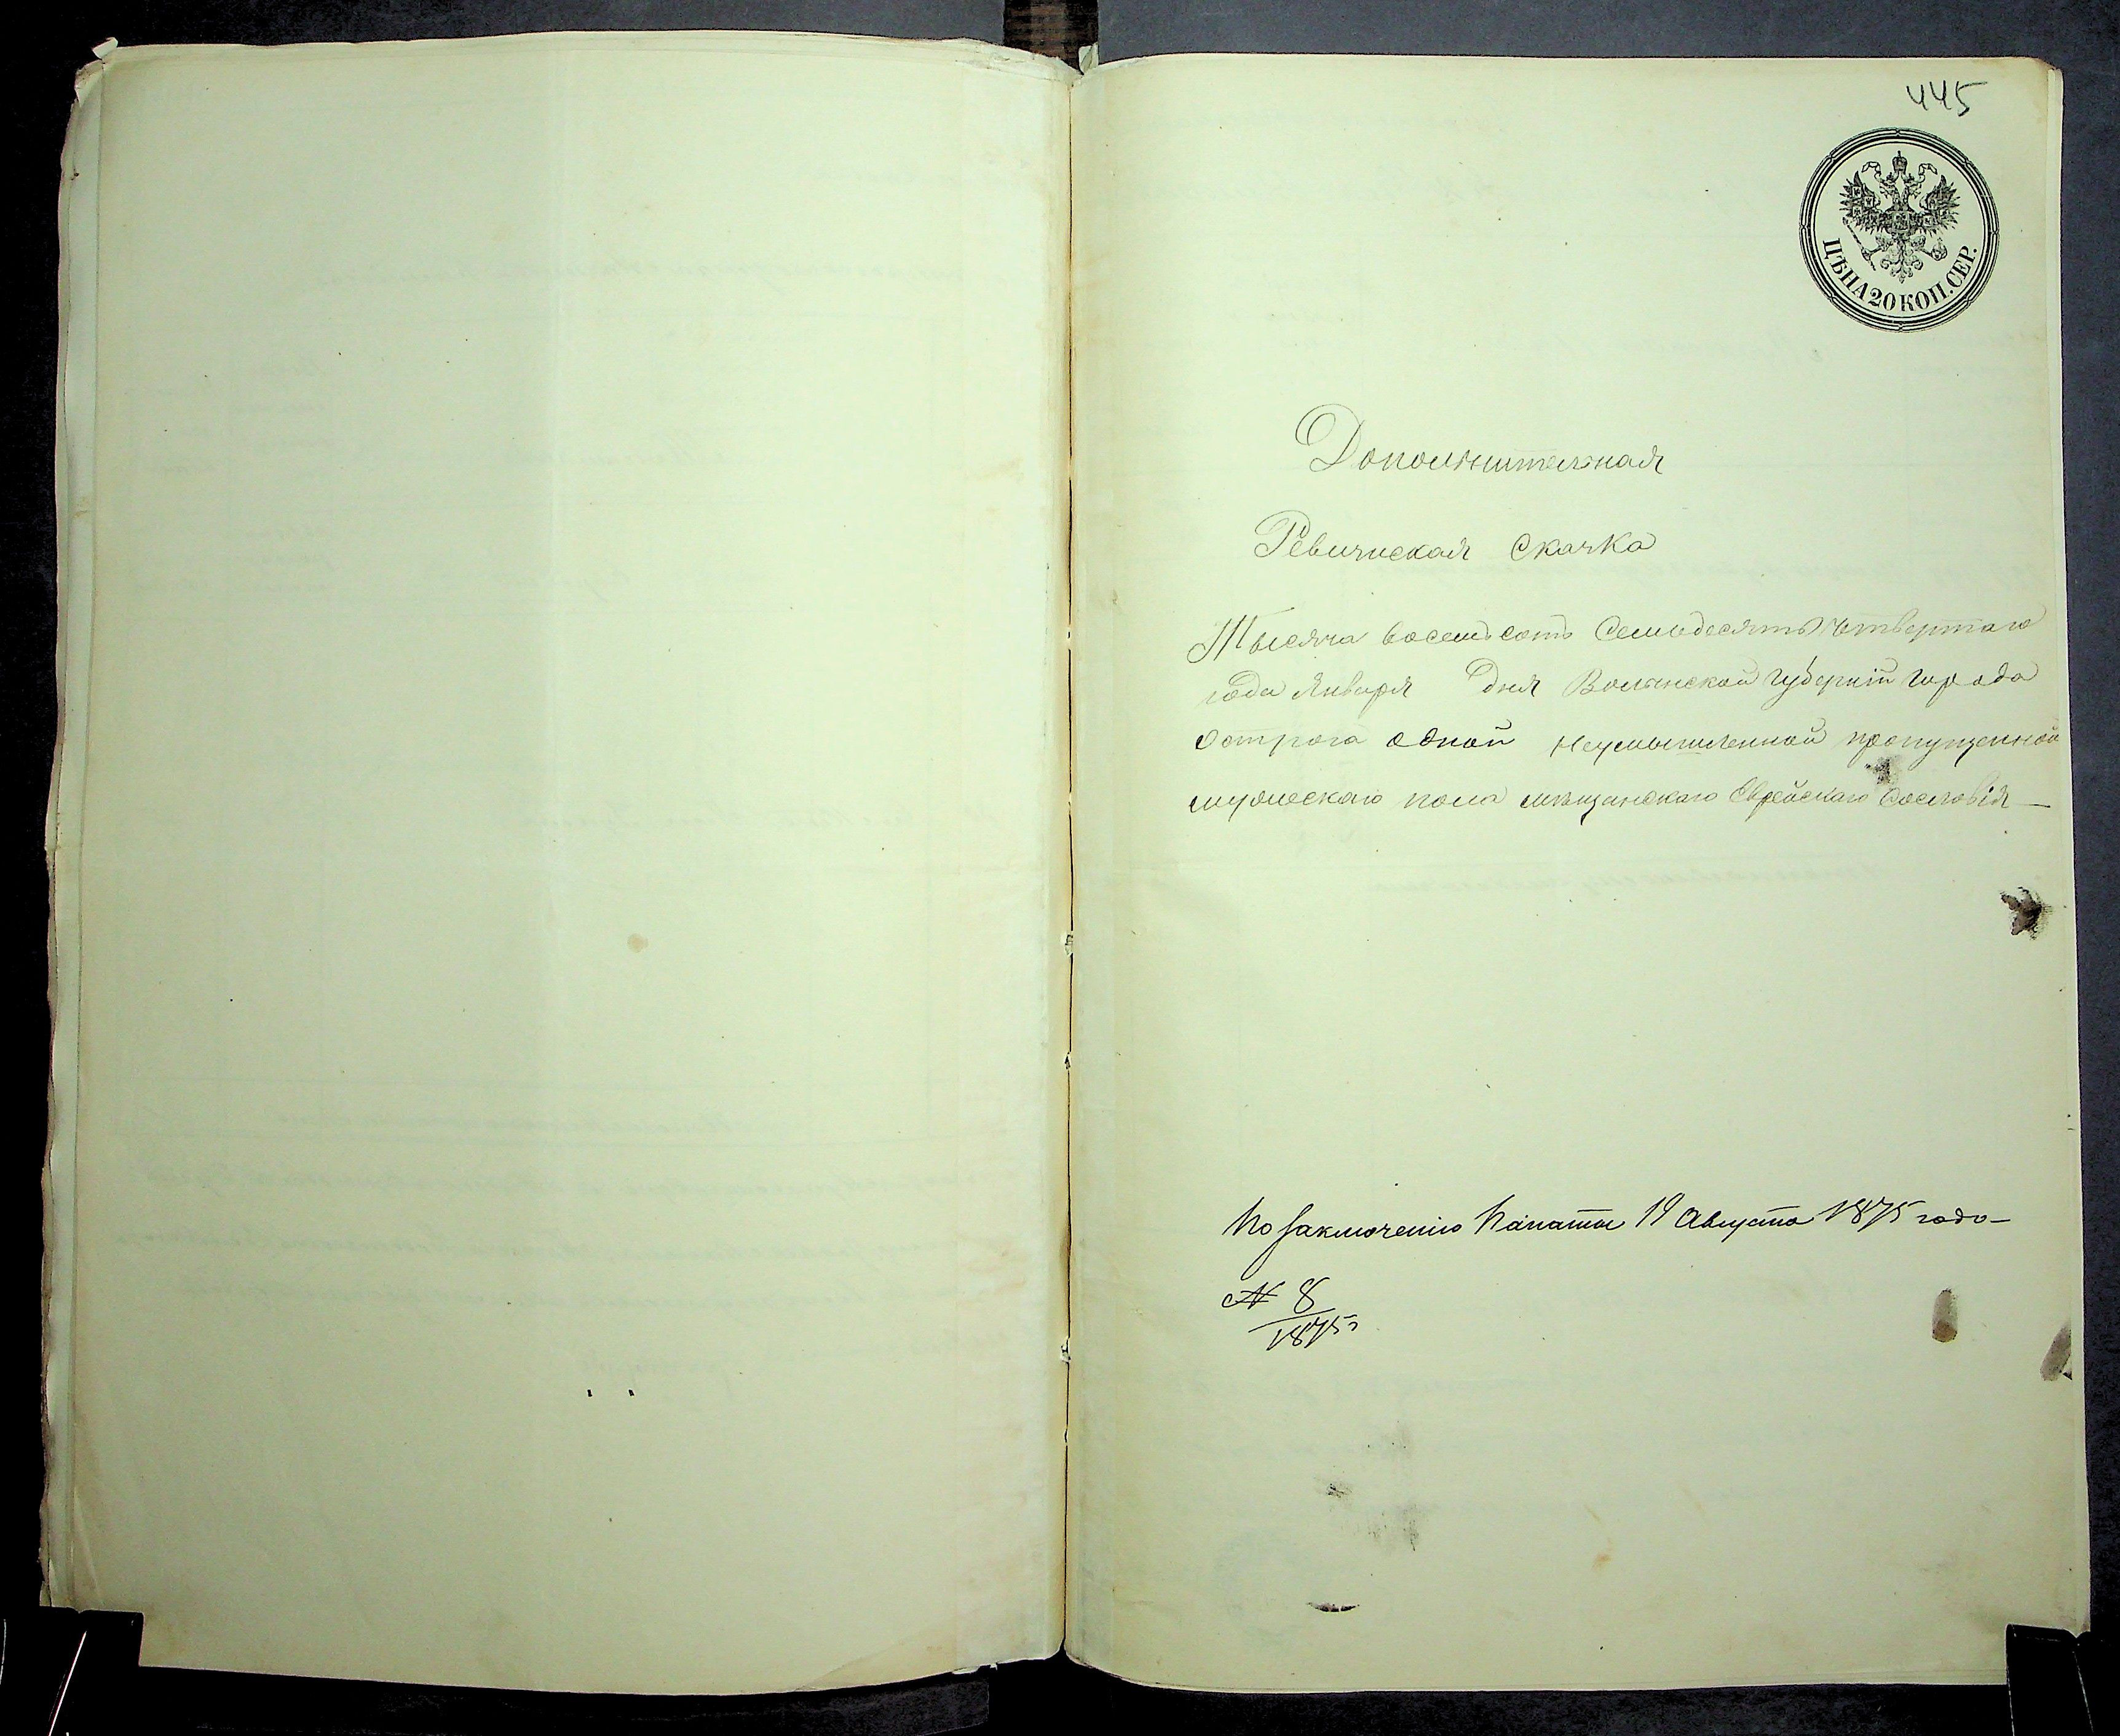 445
ЦѢНА 20 КОП. СЕР.
Дополнительная
Ревизская Сказка
Тысяча восемьсотъ Семьдесятъ четвертаго
года Января дня Волынской Губерніи Города
Острога одной неумышленной пропущенной
мужескаго пола мѣщанскаго Еврейскаго Сословія —
По заключенію Палаты 19 Августа 1875 года —
№ 8
1875